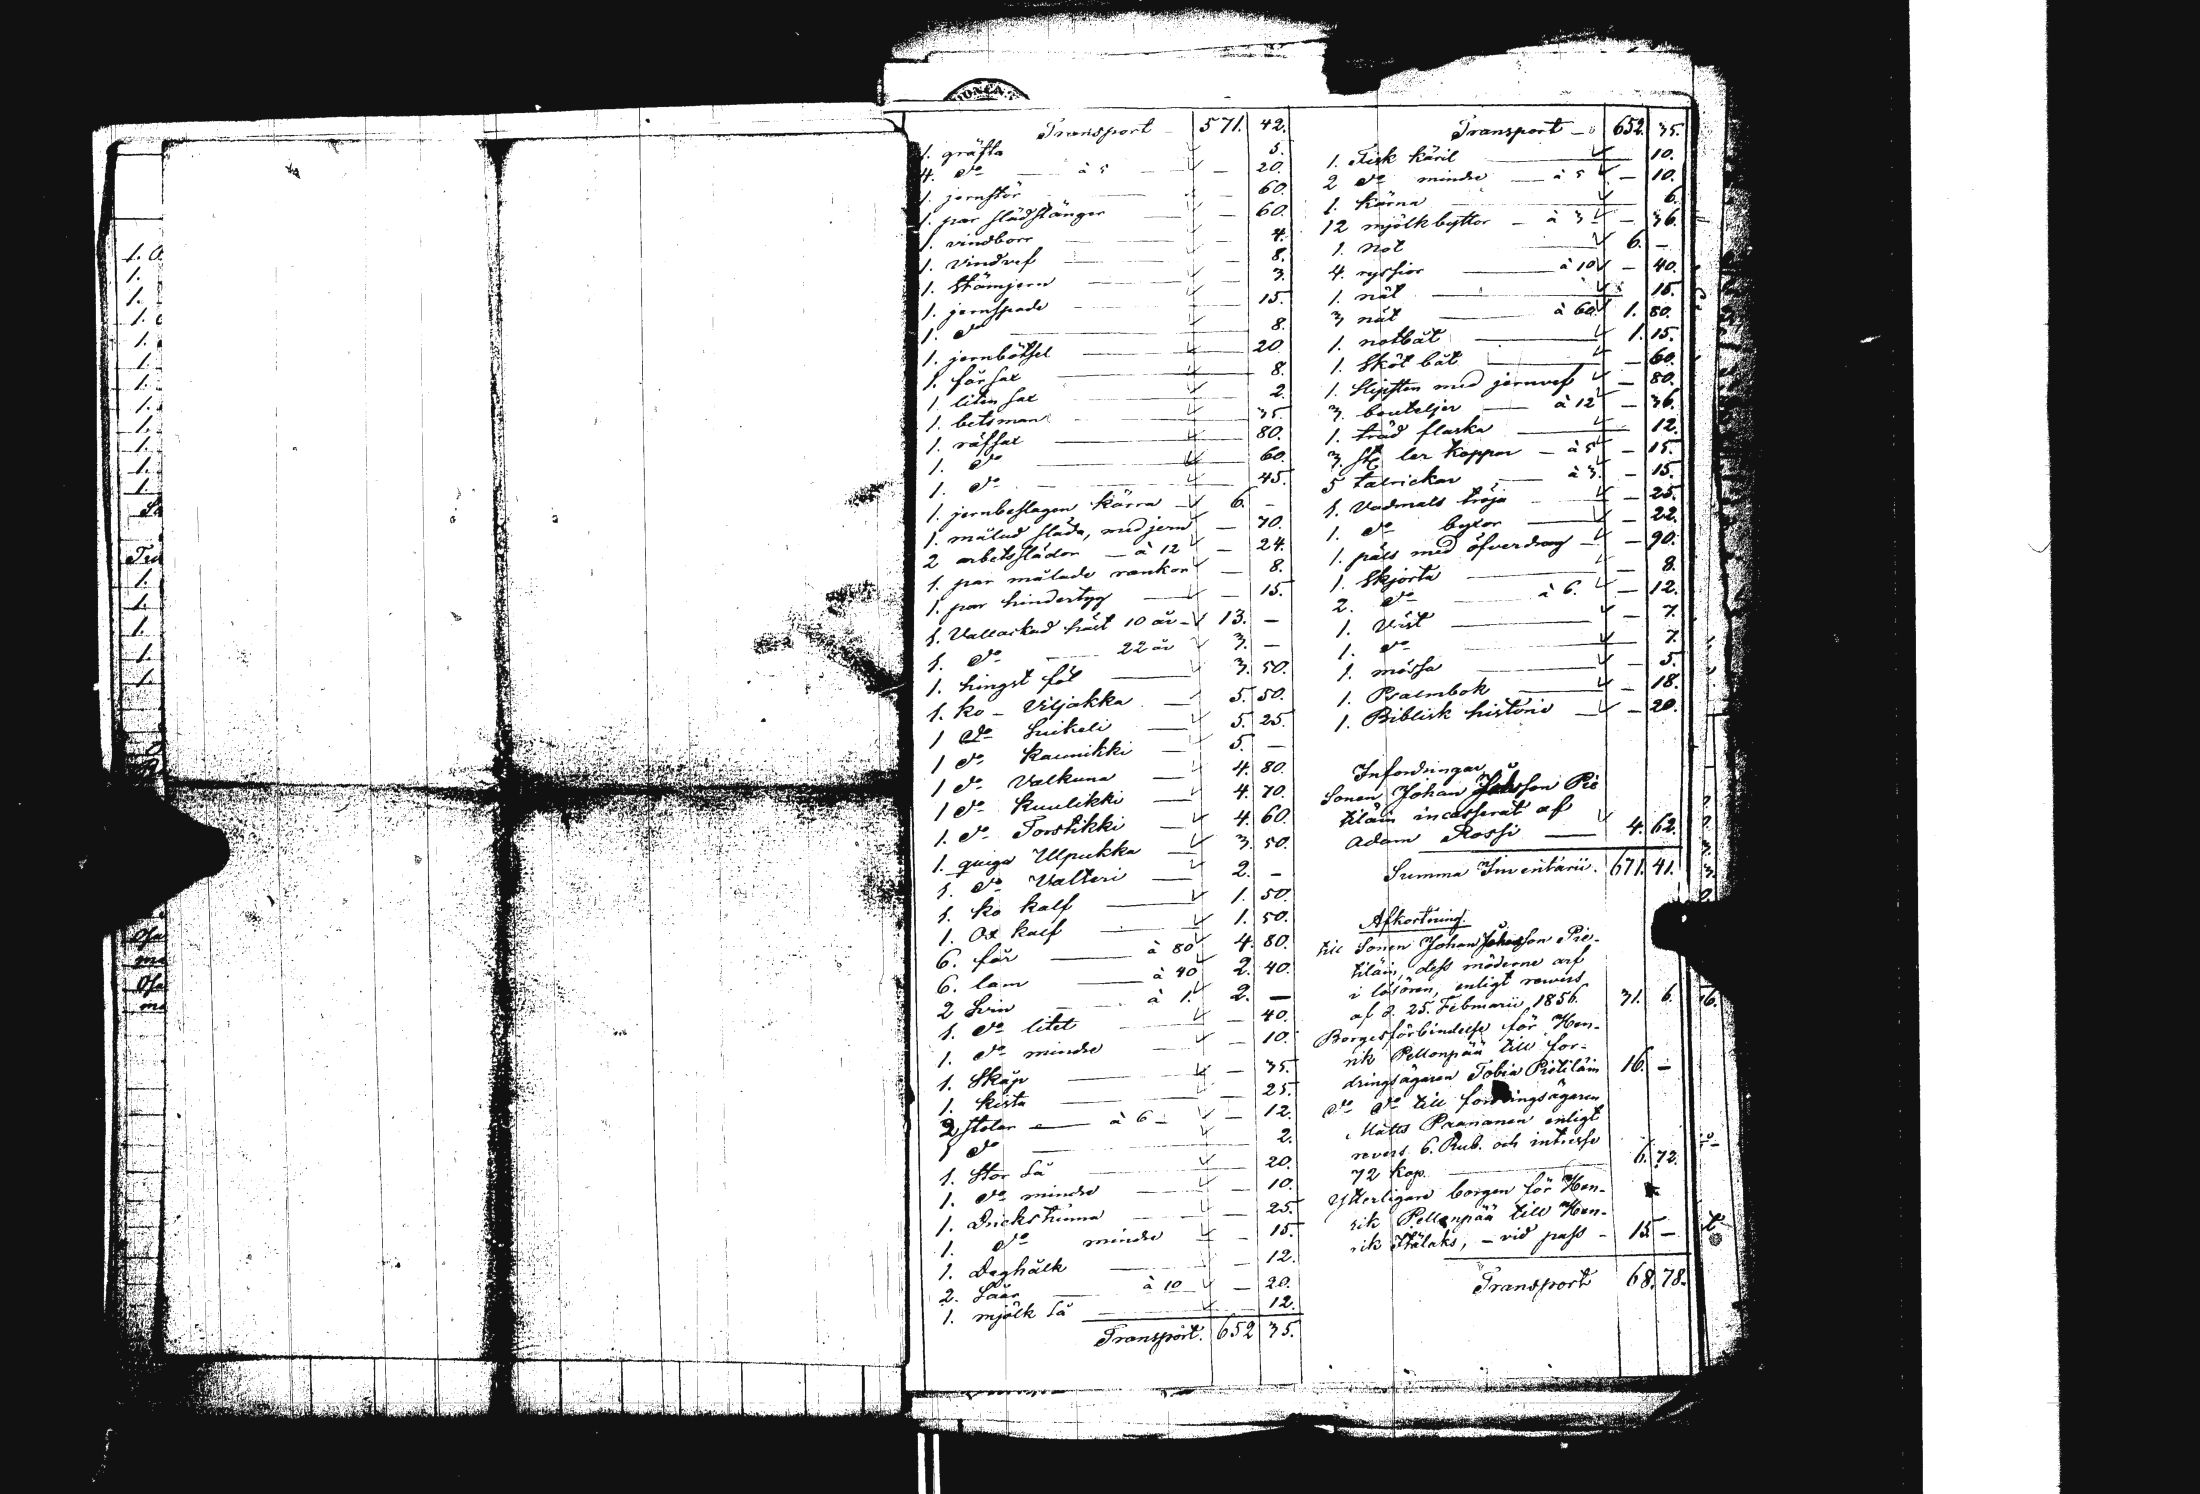 Transport 571. 42.
1. gräfta 5.
4. do à 5 20.
1. jernstör 60.
1. par slädstänger 60.
1. vindborr 4.
1. Vindvef 8.
1. Stämjern 3.
1. jernspade 15.
1. do 8.
1. jernbötsel 20
1. fårsax 8.
1 liten sax 2.
1. betsman 35
1. räfsax 80.
1. do 60.
1. do 45.
1. jernbeslagen kärra 6. -
1. målad släda, med jern 70.
2 arbetsslädor à 12 24.
1. par målade rankor 8.
1. par hindertyg 15.
1. Vallackad häst 10 år 13. -
1. do 22 år 3. -
1. hingst föl 3. 50.
1. ko - Viljakka 5. 50.
1 do Luikeli 5. 25.
1 do Kaunikki 5. -
1 do Valkuna 4. 80.
1 do Kuulikki 4. 70.
1. do Torstikki 4. 60.
1. quiga Ulpukka 3. 50.
1. do Valtteri 2. -
1. ko kalf 1. 50.
1. Ox kalf 1. 50.
6. får à 80 4. 80.
6. lam à 40 2. 40.
2 Svin à 1. 2. -
1. do litet 40.
1. do mindre 10.
1. Skåp 35.
1. Kista 25.
2 Stolar à 6 12.
1 do 2.
1. Stor Så 20.
1. do mindre 10.
1. Drickstunna 25.
1. do mindre 15.
1. Deghålk 12.
2. Såar à 10 20.
1. mjölk Så 12.
Transport. 652 35.
Transport 652. 35.
1. Fisk käril 10.
2 do mindre à 5 10.
1. kärna 6.
12 mjölkbyttor à 3 36.
1. not 6. -
4. ryssior à 10 40.
1. nät 15.
3 nät à 60. 1. 80.
1. notbåt 1. 15.
1. Sköt båt 60.
1. Slipsten med jernvef 80.
3. bouteljer à 12 36.
1. träd flaska 12.
3. st ler koppar à 5 15.
5 talrickar à 3. 15.
1. Vadmals tröja 25.
1. do byxor 22.
1. päls med öfverdrag 90.
1. Skjorta 8.
2. do à 6. 12.
1. Väst 7.
1. do 7.
1. mössa 5.
1. Psalmbok 18.
1. Biblisk historie 20.
Infordringar
Sonen Johan Johansson Pie
tiläin incasserat af
Adam Rossi 4. 62.
Summa Inventarii. 671. 41.
Afkortning.
till Sonen Johan Johansson Pie-
tiläin, dess möderne arf
i lösören, enligt revers
af d. 25. Februarii 1856. 31. 6.
Borgesförbindelse för Hen-
rik Pellonpää till for-
dringsägaren Tobia Pietiläin 16. -
do do till fordringsägaren
Matts Paananen enligt
revers 6. Rub. och intresse
72 kop. 6. 72.
Ytterligare borgen för Hen-
rik Pellonpää till Hen-
rik Itälaks, - vid pass - 15 -
Transport 68. 78.